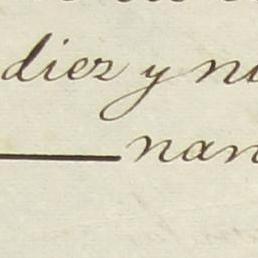 diez y nu
nan